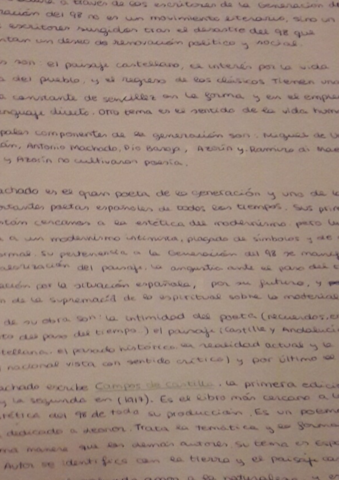 a través de los escritores de la Generación de
ación del 98 no es un movimiento literario, sino un
escritores surgidos tras el desastre del 98 que
un deseo de renovación político y social.
son el paisaje castellano, el interés por la vida
del pueblo, y el regreso de los clásicos. Tienen una
constante de sencillez en la forma y en el emple
lenguaje directo. Otro tema es el sentido de la vida hum
pales componentes de la generación son: Miguel de U
Antonio Machado, Pío Baroja, Azorín y Ramiro de Mae
y Azorín no cultivaron poesía.
achado es el gran poeta de la generación y uno de l
poetas españoles de todos los tiempos. Sus prim
están cercanos a la estética del modernismo, pero
a un modernismo intimista, plagado de símbolos y de
ormas. Su pertenencia a la Generación del 98 se manif
valorización del paisaje, la angustia ante el paso del t
ación por la situación española, por su futuro, y
ón de la supremacía de lo espiritual sobre lo material
de su obra son: la intimidad del poeta (recuerdos,
del paso del tiempo.) el paisaje (Castilla y Andalucía
castellana. el pasado histórico la realidad actual y la
nacional vista con sentido crítico) y por último el
achado escribe Campos de Castilla, la primera edici
la segunda en (1917). Es el libro más cercano a l
estética del 98 de toda su producción. Es un
dedicado a Leonor. Trata la temática y la forma
misma manera que los demás autores su tema es Esp
Autor se identifica con la tierra y el paisaje ca
amor a la naturaleza, y